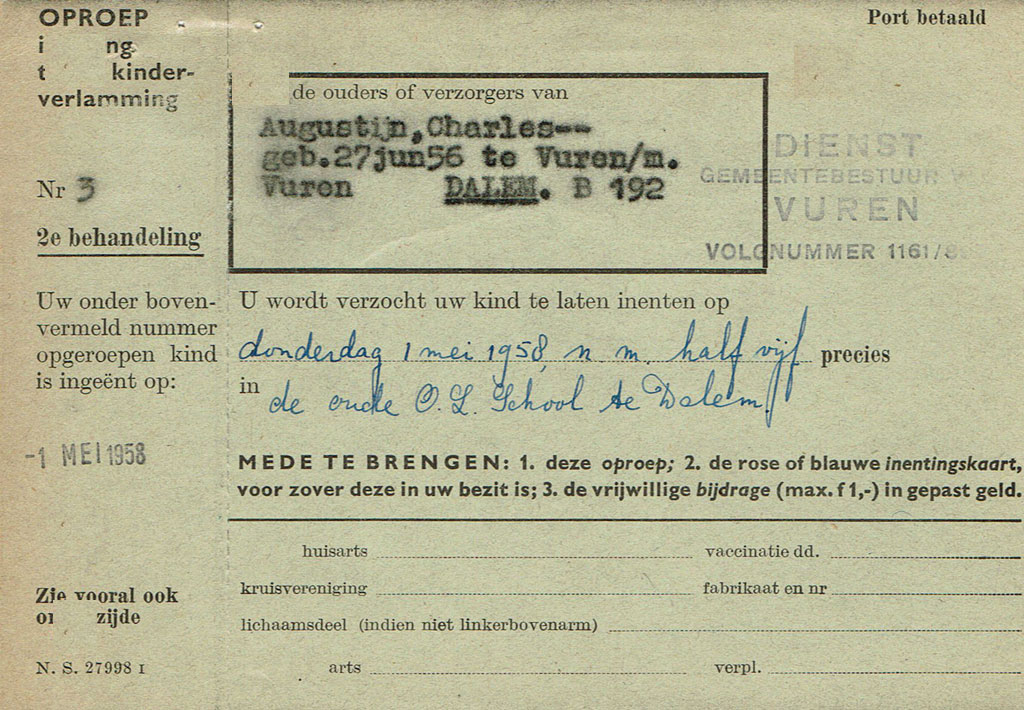 OPROEP
i ng
t kinder-
verlamming
Nr 3
2e behandeling
Uw onder boven-
vermeld nummer
opgeroepen kind
is ingeënt op:
-1 MEI 1958
Zie vooral ook
zijde
N. S. 27998 I
Port betaald
de ouders of verzorgers van
Augustijn,Charles--
geb.27jun56 te Vuren/m.
Vuren DALEM. B 192
DIENST
GEMEENTEBESTUUR
VUREN
VOLGNUMMER 1161/8
U wordt verzocht uw kind te laten inenten op
donderdag 1 mei 1958, n.m. half vijf precies
in de oude O.L. School te Dalem.
MEDE TE BRENGEN: 1. deze oproep; 2. de rose of blauwe inentingskaart,
voor zover deze in uw bezit is; 3. de vrijwillige bijdrage (max. f 1,-) in gepast geld.
huisarts vaccinatie dd.
kruisvereniging fabrikaat en nr
lichaamsdeel (indien niet linkerbovenarm)
arts verpl.